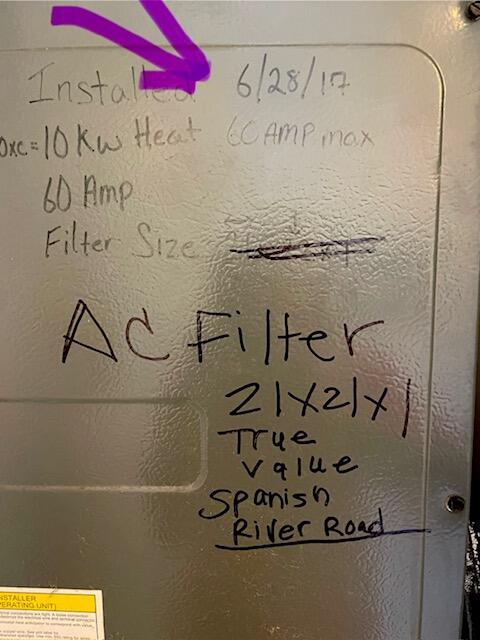 Installed 6/28/17
0xc=10 Kw Heat 60 AMP max
60 Amp
Filter Size
AC Filter
21x21x1
True
Value
Spanish
River Road
INSTALLER